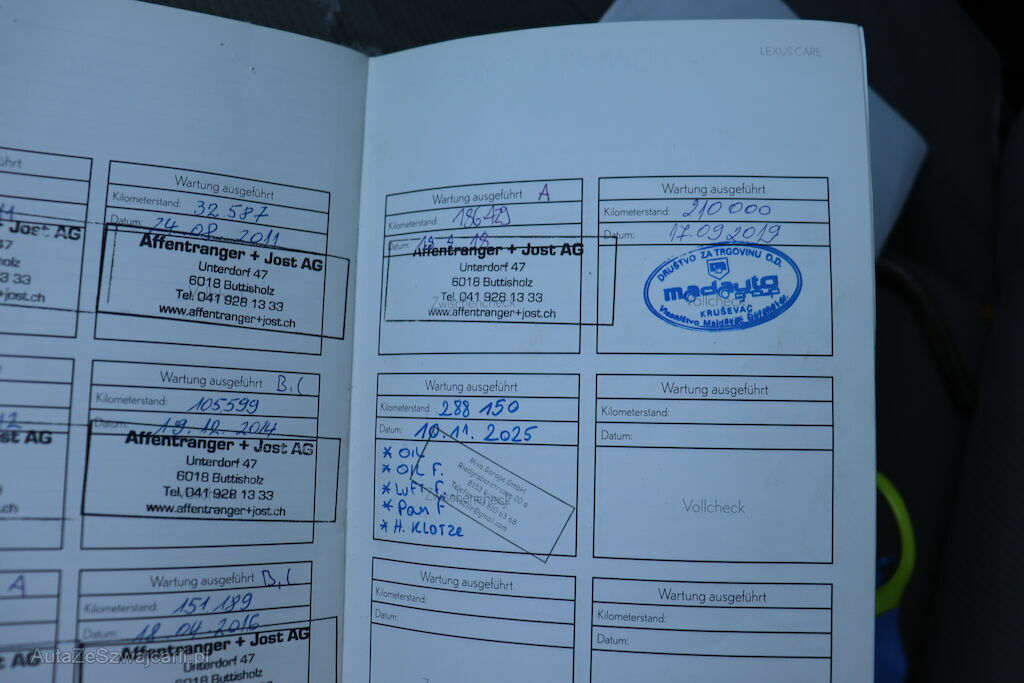 LEXUS CARE
Wartung ausgeführt
Kilometerstand: 32 587
Datum: 24.08.2011
Affentranger + Jost AG
Unterdorf 47
6018 Buttisholz
Tel. 041 928 13 33
www.affentranger+jost.ch
Jost AG
Wartung ausgeführt B, C
Kilometerstand: 105599
Datum: 19.12.2014
Affentranger + Jost AG
Unterdorf 47
6018 Buttisholz
Tel. 041 928 13 33
www.affentranger+jost.ch
A
Wartung ausgeführt B, C
Kilometerstand: 151 189
Datum: 18.04.2016
Affentranger + Jost AG
Unterdorf 47
6018 Buttisholz
Wartung ausgeführt A
Kilometerstand: 186429
Datum:
Affentranger + Jost AG
Unterdorf 47
6018 Buttisholz
Tel. 041 928 13 33
Zwischencheck
www.affentranger+jost.ch
Wartung ausgeführt
Kilometerstand: 210 000
Datum: 17.09.2019
DRUŠTVO ZA TRGOVINU O.D.
madauto
Vollcheck
KRUŠEVAC
Wartung ausgeführt
Kilometerstand: 288 150
Datum: 10.11.2025
* OIL
* OIL F.
* Luft F.
* Pon F
* H. KLOTZE
Zwischencheck
Miva Garage GmbH
Wartung ausgeführt
Kilometerstand:
Datum:
Vollcheck
Wartung ausgeführt
Kilometerstand:
Datum:
Wartung ausgeführt
Kilometerstand:
Datum:
AutaZeSzwajcarii.pl